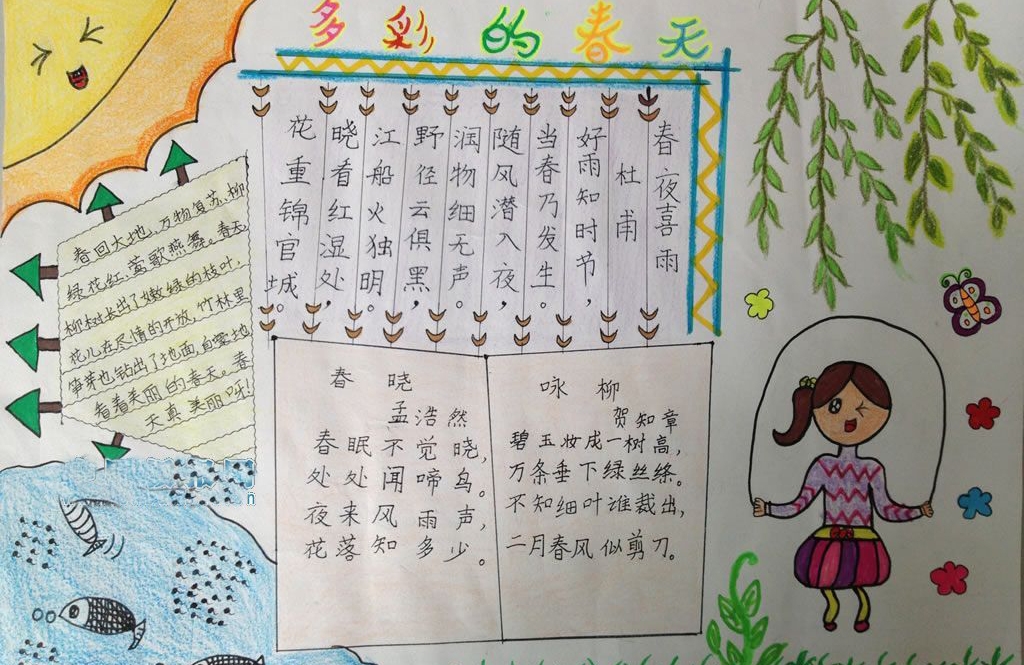 多彩的春天
春夜喜雨
杜甫
好雨知时节，
当春乃发生。
随风潜入夜，
润物细无声。
野径云俱黑，
江船火独明。
晓看红湿处，
花重锦官城。
春回大地，万物复苏，柳
绿花红，莺歌燕舞。春天，
柳树长出了嫩绿的枝叶，
花儿在尽情的开放，竹林里
笋芽也钻出了地面，地
看着美丽的春天。春
天真美丽呀！
春晓
孟浩然
春眠不觉晓，
处处闻啼鸟。
夜来风雨声，
花落知多少。
咏柳
贺知章
碧玉妆成一树高，
万条垂下绿丝绦。
不知细叶谁裁出，
二月春风似剪刀。